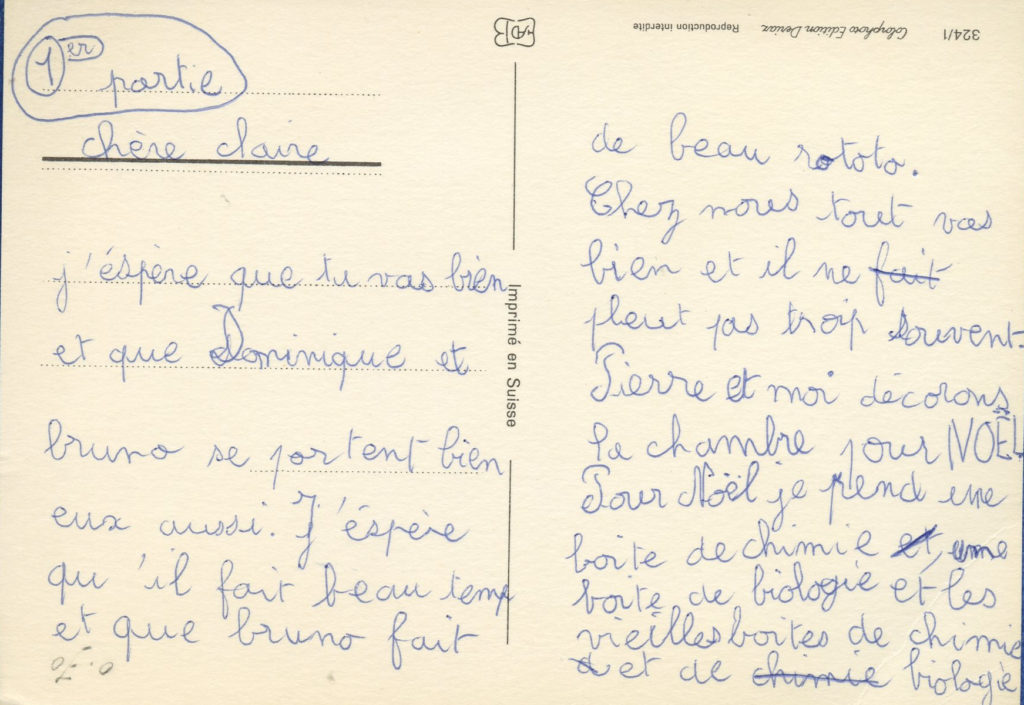 1er
partie
chère claire
j'éspère que tu vas bien
et que Dominique et
bruno se portent bien
eux aussi. J'éspère
qu'il fait beau temp
et que bruno fait
0.-70
Imprimé en Suisse
324/1 Colorphoto Edition Deriaz Reproduction interdite
de beau rototo.
Chez nous tout vas
bien et il ne fait
pleut pas troip souvent.
Pierre et moi décorons
la chambre pour NOËL
Pour Noël je prend une
boite de chimie et, une
boite de biologie et les
vieilles boites de chimie
et de chimie biologie